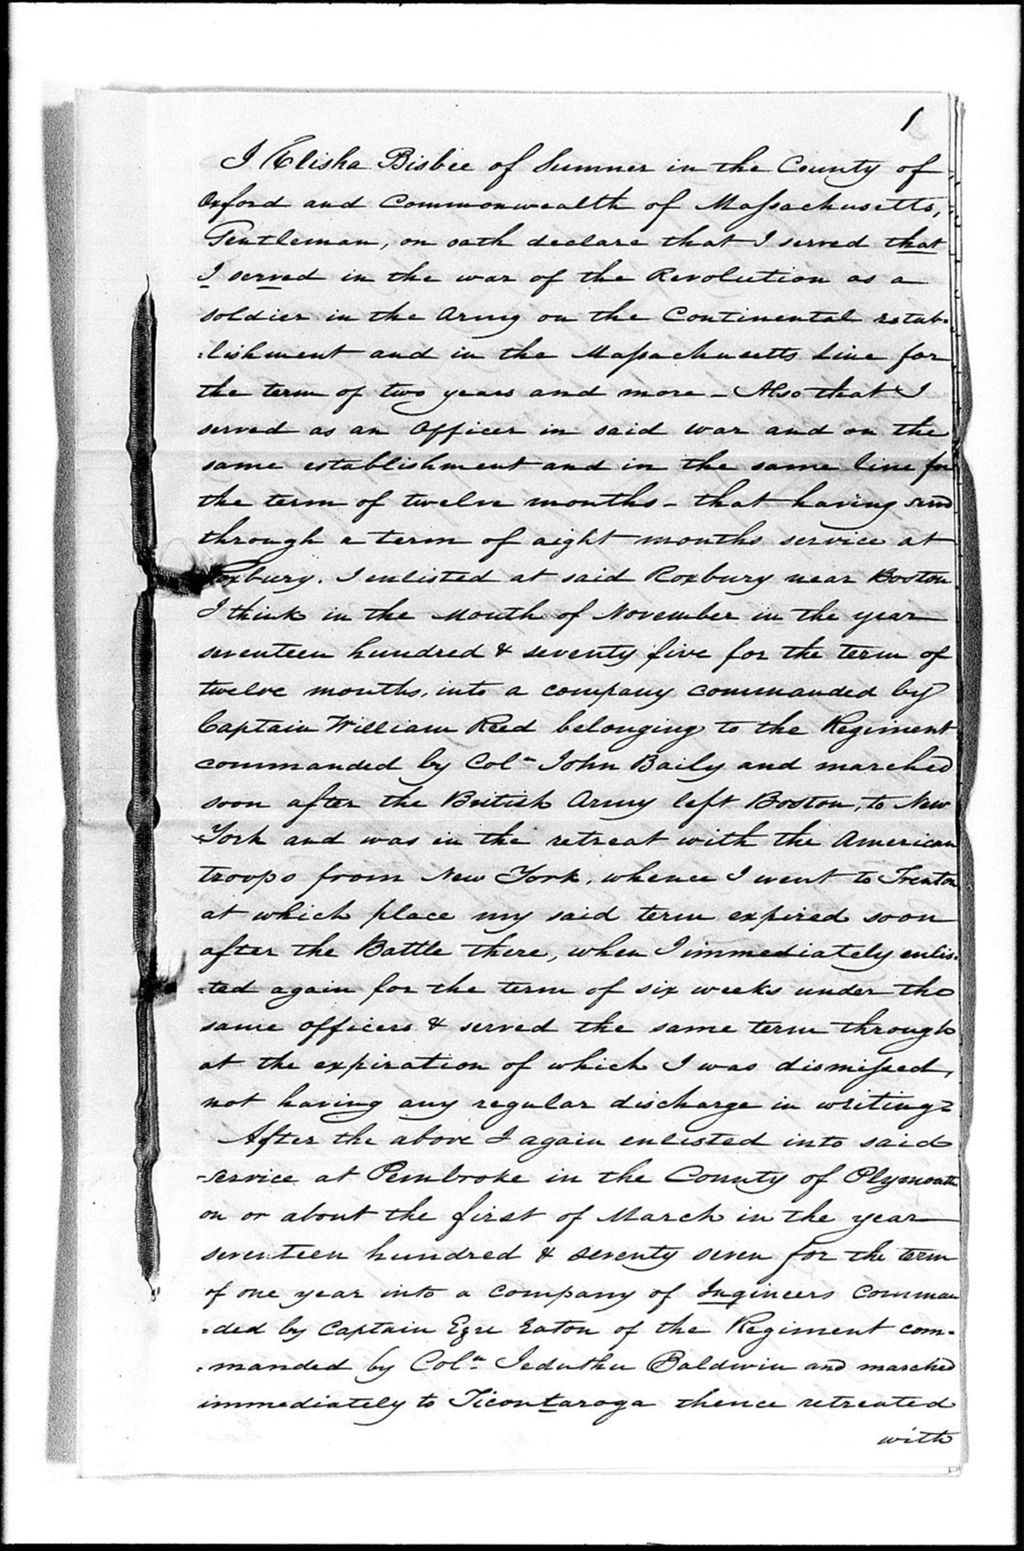 1
I Elisha Bisbee of Sumner in the County of
Oxford and Commonwealth of Massachusetts,
Gentleman, on oath declare that I served that
I served in the war of the Revolution as a
soldier in the Army on the Continental estab-
-lishment and in the Massachusetts Line for
the term of two years and more - Also that I
served as an Officer in said war and on the
same establishment and in the same line for
the term of twelve months - that having
through a term of eight months service at
Roxbury. I enlisted at said Roxbury near Boston
I think in the Month of November in the year
seventeen hundred & seventy five for the term of
twelve months, into a company commanded by
Captain William Reed belonging to the Regiment
commanded by Coln John Baily and marched
soon after the British Army left Boston, to New
York and was in the retreat with the American
troops from New York, whence I went to Trenton
at which place my said term expired soon
after the Battle there, when I immediately enlis-
-ted again for the term of six weeks under the
same officers & served the same term through
at the expiration of which I was dismissed,
not having any regular discharge in writing
After the above I again enlisted into said
service at Pembroke in the County of Plymouth
on or about the first of March in the year
seventeen hundred & seventy seven for the term
of one year into a company of Ingineers Comman
-ded by Captain Ezre Eaton of the Regiment com-
-manded by Coln Jeduthu Baldwin and marched
immediately to Ticontaroga thence retreated
with